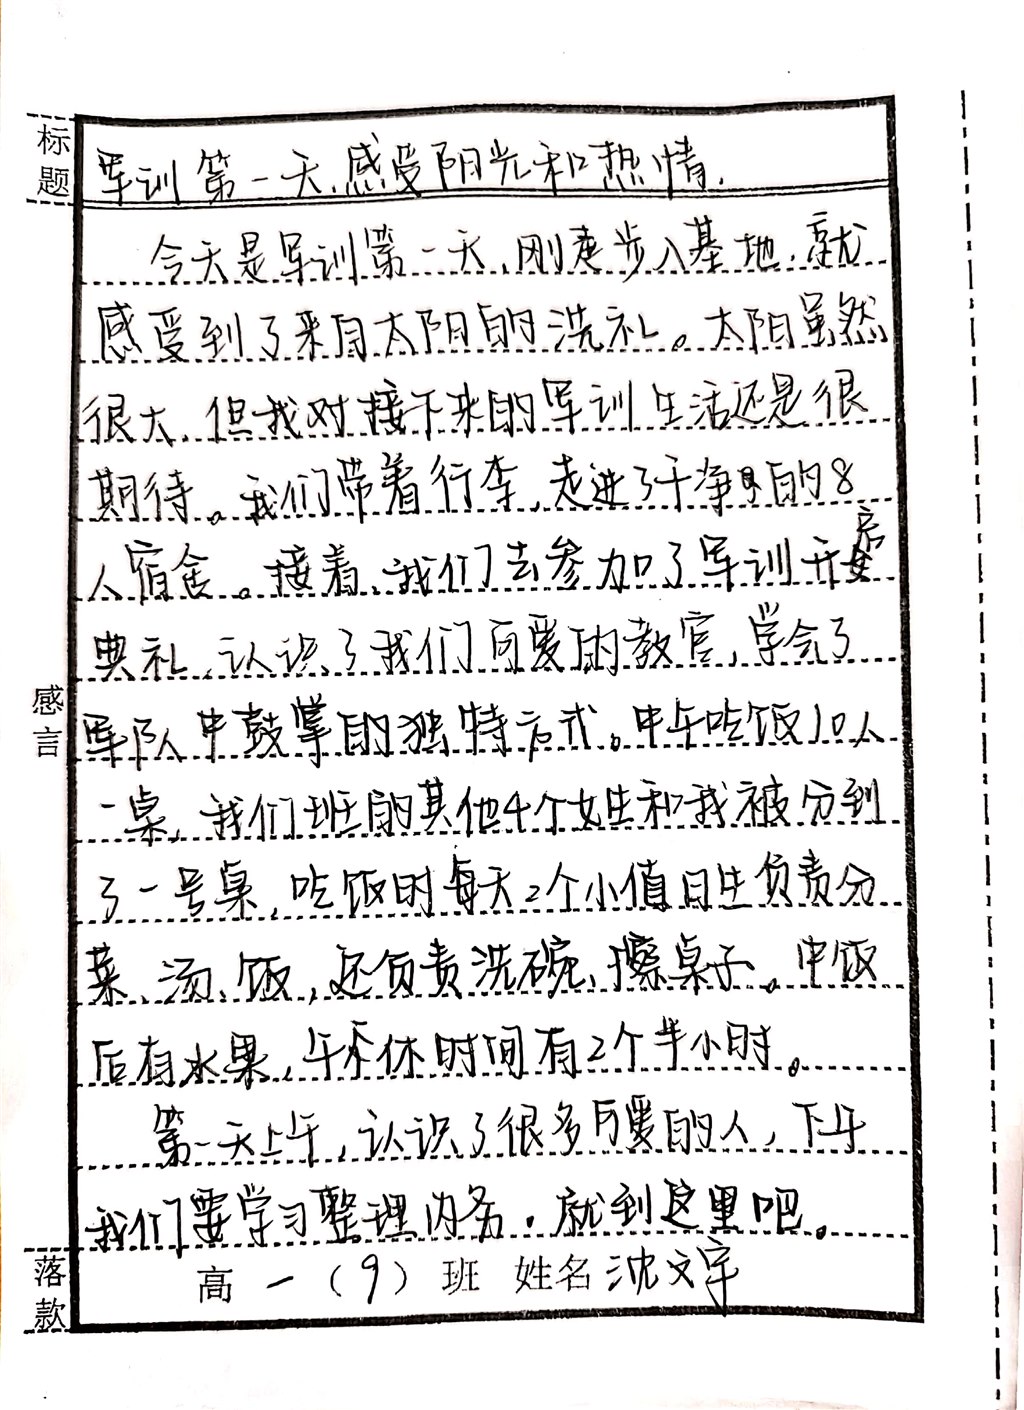 标题
军训第一天,感受阳光和热情.
今天是军训第一天,刚走步入基地,就
感受到了来自太阳的洗礼。太阳虽然
很大,但我对接下来的军训生活还是很
期待。我们带着行李,走进了干净的8
人宿舍。接着,我们去参加了军训开启
典礼,认识了我们可爱的教官,学会了
感言
军队中鼓掌的独特方式。中午吃饭10人
一桌,我们班的其他4个女生和我被分到
了一号桌,吃饭时每天2个小值日生负责分
菜、汤、饭,还负责洗碗、擦桌子。中饭
后有水果,午休时间有2个半小时。
第一天上午,认识了很多可爱的人,下午
我们要学习整理内务.就到这里吧。
落款
高一(9)班 姓名沈文宇